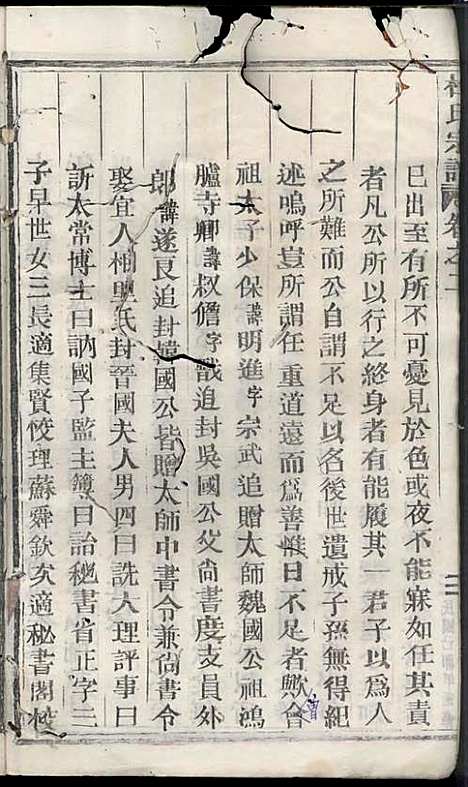 杜氏宗譜 卷之二
已出至有所不可憂見於色或夜不能寐如任其責
者凡公所以行之終身者有能履其一君子以爲人
之所難而公自謂不足以名後世遺戒子孫無得紀
述嗚呼豈所謂任重道遠而爲善惟日不足者歟會
曾
祖太子少保諱明進字宗武追贈太師魏國公祖鴻
臚寺卿諱叔詹字識追封吳國公父尚書度支員外
郎諱遂良追封國公皆贈太師中書令兼尚書令
娶宜人相里氏封晉國夫人男四曰詵大理評事曰
訢太常博士曰訥國子監主簿曰詒秘書省正字二
子早世女三長適集賢校理蘇舜欽次適秘書閣校